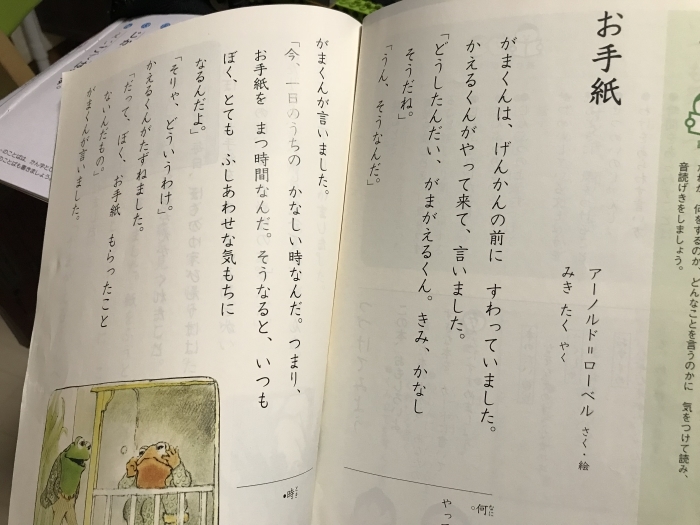 何をするのか、どんなことを言うのかに 気をつけて読み、
音読げきをしましょう。
お手紙
アーノルド=ローベル さく・絵
みき たく やく
がまくんは、げんかんの前に すわっていました。
かえるくんがやって来て、言いました。
「どうしたんだい、がまがえるくん。きみ、かなし
そうだね。」
「うん、そうなんだ。」
何 なに
がまくんが言いました。
「今、一日のうちの かなしい時なんだ。つまり、
お手紙を まつ時間なんだ。そうなると、いつも
ぼく、とても ふしあわせな気もちに
なるんだよ。」
「そりゃ、どういうわけ。」
かえるくんがたずねました。
「だって、ぼく、お手紙 もらったこと
ないんだもの。」
がまくんが言いました。
時 とき